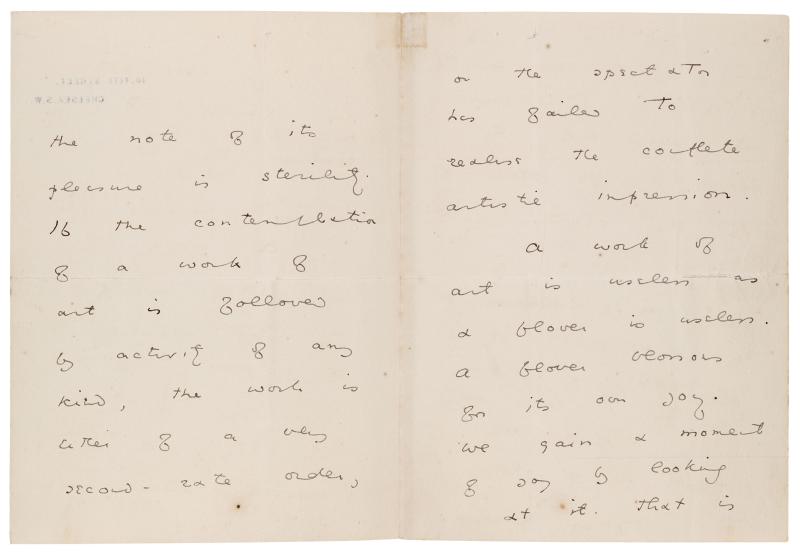 16, TITE STREET,
CHELSEA. S.W.
the note of its
pleasure is sterility.
If the contemplation
of a work of
art is followed
by activity of any
kind, the work is
either of a very
second-rate order,
or the spectator
has failed to
realise the complete
artistic impression.
A work of
art is useless as
a flower is useless.
A flower blossoms
for its own joy.
We gain a moment
of joy by looking
at it. That is